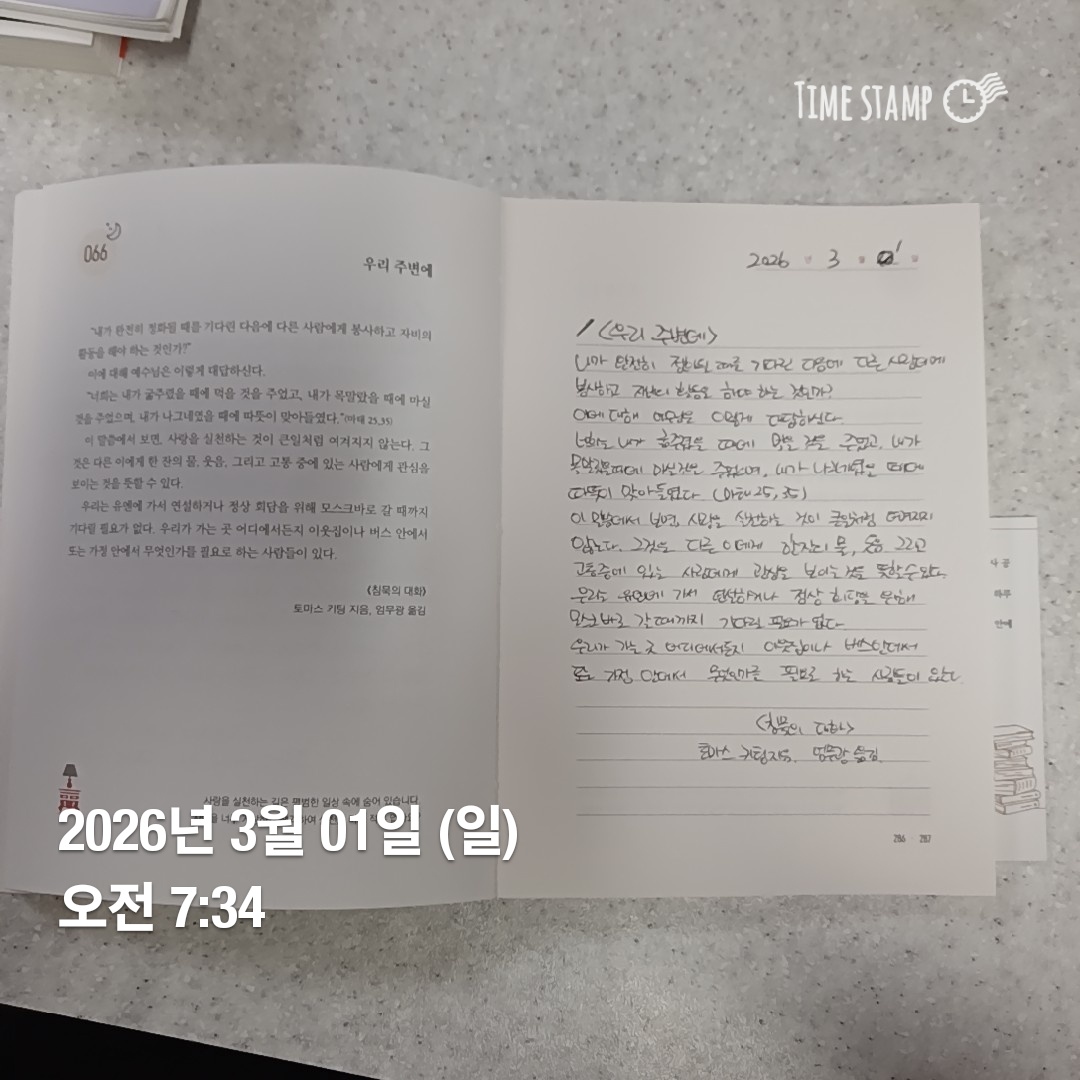 TIME STAMP
066
우리 주변에
"내가 완전히 정화될 때를 기다린 다음에 다른 사람에게 봉사하고 자비의
활동을 해야 하는 것인가?"
이에 대해 예수님은 이렇게 대답하신다.
"너희는 내가 굶주렸을 때에 먹을 것을 주었고, 내가 목말랐을 때에 마실
것을 주었으며, 내가 나그네였을 때에 따뜻이 맞아들였다."(마태 25,35)
이 말씀에서 보면, 사랑을 실천하는 것이 큰일처럼 여겨지지 않는다. 그
것은 다른 이에게 한 잔의 물, 웃음, 그리고 고통 중에 있는 사람에게 관심을
보이는 것을 뜻할 수 있다.
우리는 유엔에 가서 연설하거나 정상 회담을 위해 모스크바로 갈 때까지
기다릴 필요가 없다. 우리가 가는 곳 어디에서든지 이웃집이나 버스 안에서
또는 가정 안에서 무엇인가를 필요로 하는 사람들이 있다.
《침묵의 대화》
토마스 키팅 지음, 엄무광 옮김
사랑을 실천하는 길은 평범한 일상 속에 숨어 있습니다.
2026 년 3 월 1 일
<우리 주변에>
내가 완전히 정화될 때를 기다린 다음에 다른 사람에게
봉사하고 자비의 활동을 해야 하는 것인가?
이에 대해 예수님은 이렇게 대답하신다.
너희는 내가 굶주렸을 때에 먹을 것을 주었고, 내가
목말랐을때에 마실것을 주었으며, 내가 나그네였을 때에
따뜻이 맞아들였다. (마태25,35)
이 말씀에서 보면, 사랑을 실천하는 것이 큰일처럼 여겨지지
않는다. 그것은 다른 이에게 한잔의 물, 웃음 그리고
고통중에 있는 사람에게 관심을 보이는것을 뜻할수있다.
우리는 유엔에 가서 연설하거나 정상 회담을 위해
모스크바로 갈때까지 기다릴 필요가 없다.
우리가 가는 곳 어디에서든지 이웃집이나 버스안에서
또는 가정 안에서 무엇인가를 필요로 하는 사람들이 있다.
<침묵의 대화>
토마스 키팅지음, 엄무광 옮김.
286 287
2026년 3월 01일 (일)
오전 7:34